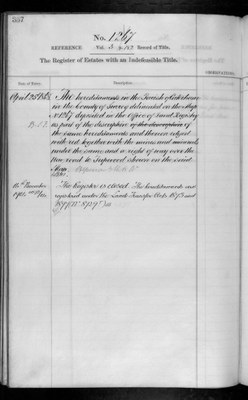 337
No. 1267
REFERENCE Vol. 3 p. 127 Record of Title.
The Register of Estates with an Indefeasible Title.
OBSERVATIONS
Date of Entry.
Description.
April 25 1865 The hereditaments in the Parish of
in the County of Surrey delineated on the Map
No 1267 deposited in the Office of Land Registry
as part of the description of the description of
the same hereditaments and thereon edged
with red together with the mines and minerals
under the same and a right of way over the
road to shown on the said
Map
December The Register is closed. The hereditaments are
registered under the Land Transfer Acts 1875 and
1897